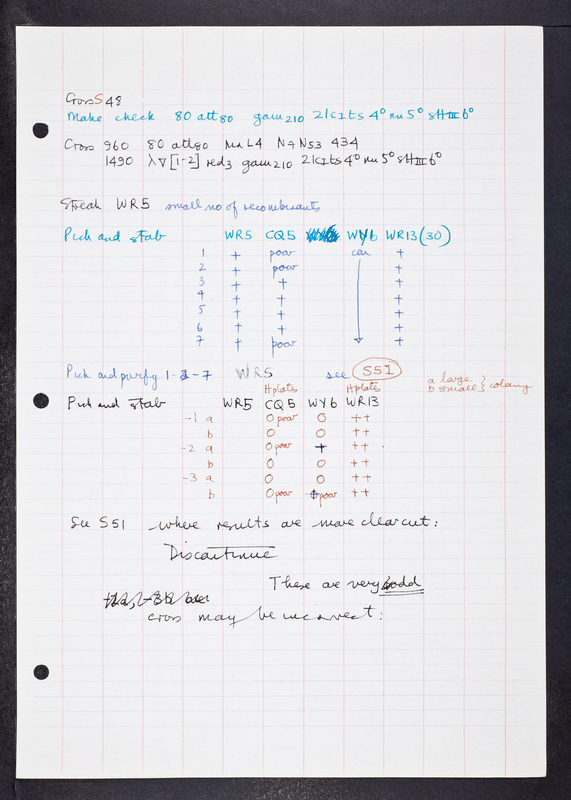 Cross S 48
Make check 80 att80 gam210 21 cI ts 4° nu 5° sHIII 6°
Cross 960 80 att80 L4 N7 N53 434
1490 λ∇[1-2] red3 gam210 21cIts4° nu5° sHIII6°
Streak WR5 small no of recombinants
Pick and stab WR5 CQ5 WY6 WR13(30)
1 + poor +
2 + poor +
3 + + +
4 + + +
5 + + +
6 + + +
7 + poor +
Pick and purify 1-7 WR5 see S51
a large }
b small } colony
H plates H plates
Pick and stab WR5 CQ5 WY6 WR13
-1 a O poor O ++
b O O ++
-2 a O poor + ++
b O O ++
-3 a O O ++
b O poor poor ++
See S51 where results are more clearcut:
Discontinue
These are very odd
cross may be incorrect: